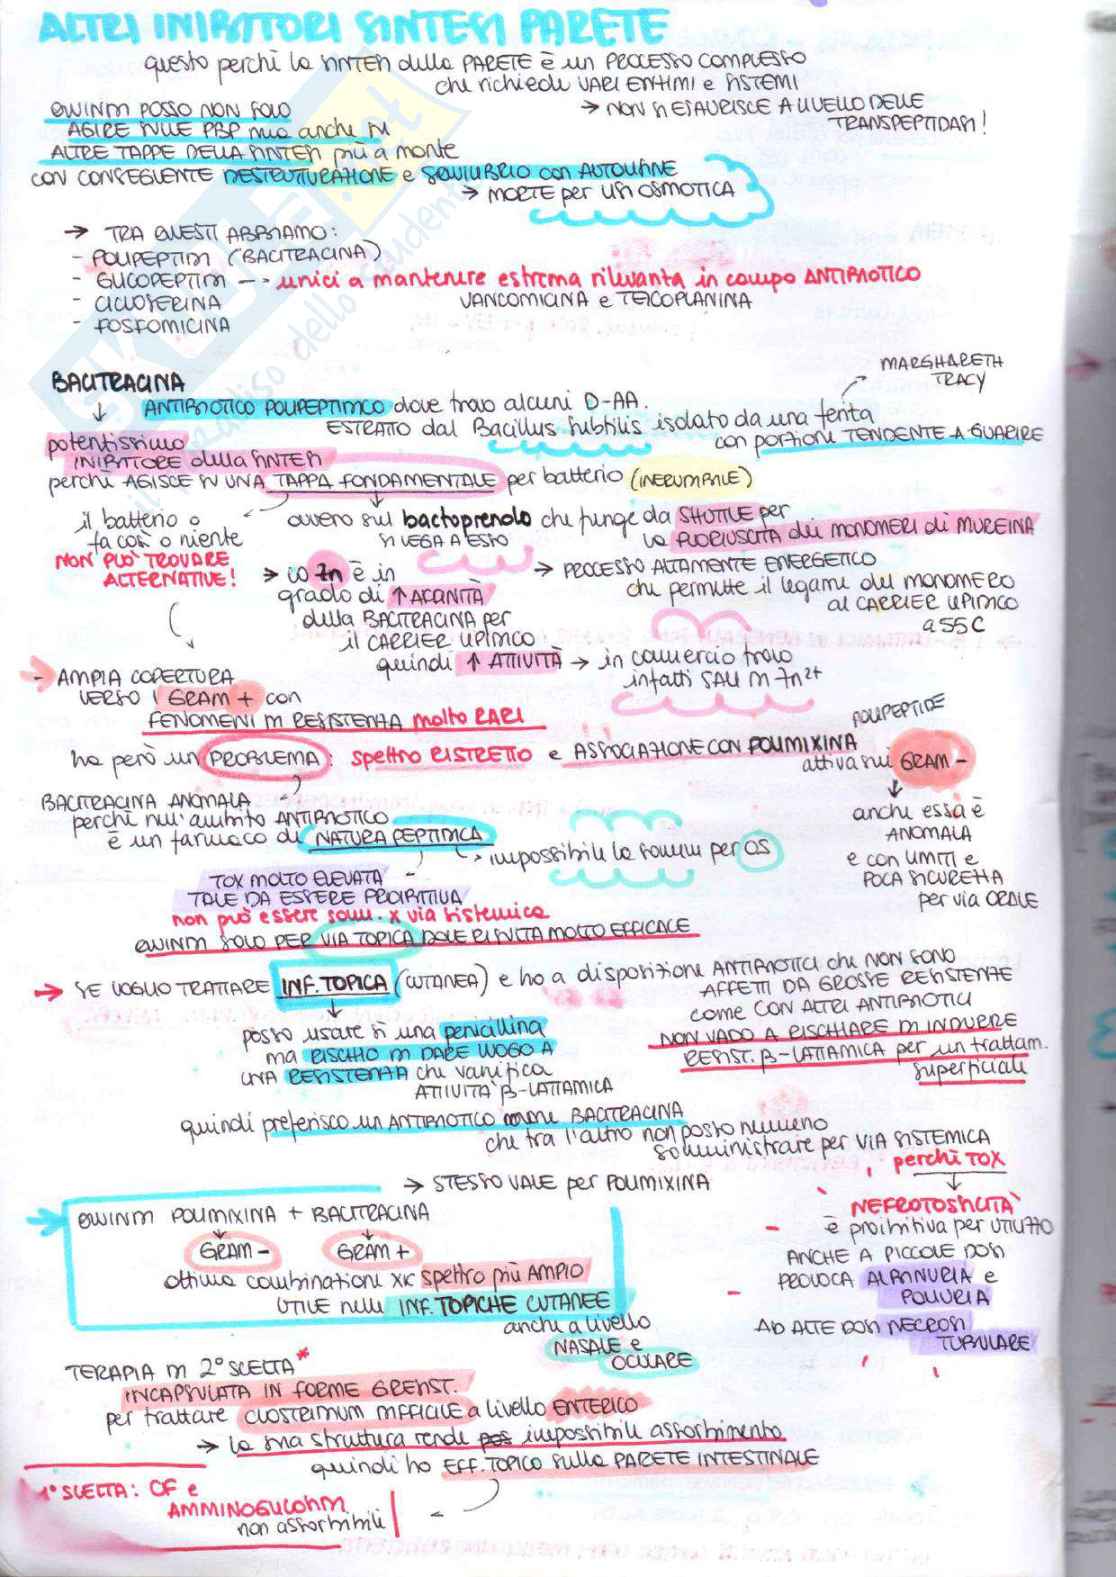 ALTRI INIBITORI SINTESI PARETE
questo perché la SINTESI della PARETE è un PROCESSO COMPLESSO
che richiede VARI ENZIMI e SISTEMI
→ NON SI ESAURISCE A LIVELLO DELLE
TRANSPEPTIDASI!
QUINDI POSSO NON SOLO
AGIRE SULLE PBP ma anche SU
ALTRE TAPPE DELLA SINTESI più a monte
CON CONSEGUENTE DESTRUTTURAZIONE e SQUILIBRIO con AUTOLISINE
→ MORTE per LISI OSMOTICA
→ TRA QUESTI ABBIAMO:
- POLIPEPTIDI (BACITRACINA)
- GLICOPEPTIDI --> unici a mantenere estrema rilevanza in campo ANTIBIOTICO
VANCOMICINA e TEICOPLANINA
- CICLOSERINA
- FOSFOMICINA
BACITRACINA
MARGHARETH
TRACY
↓ ANTIBIOTICO POLIPEPTIDICO dove trovo alcuni D-AA.
ESTRATTO dal Bacillus Subtilis isolato da una ferita
con porzioni TENDENTE A GUARIRE
potentissimo
INIBITORE della SINTESI
perché AGISCE SU UNA TAPPA FONDAMENTALE per batterio (INELIMINABILE)
il batterio o
fa così o niente
NON PUÒ TROVARE
ALTERNATIVE!
ovvero sul bactoprenolo che funge da SHUTTLE per
SI LEGA A ESSO
la FUORIUSCITA dei MONOMERI di MUREINA
→ PROCESSO ALTAMENTE ENERGETICO
che permette il legame del MONOMERO
al CARRIER LIPIDICO
a 55 C
→ lo Zn è in
grado di ↑ AFFINITÀ
della BACITRACINA per
il CARRIER LIPIDICO
quindi ↑ ATTIVITÀ → in commercio trovo
infatti SALI DI Zn²⁺
- AMPIA COPERTURA
VERSO i GRAM + con
FENOMENI DI RESISTENZA molto RARI
ha però un PROBLEMA: spettro RISTRETTO e ASSOCIAZIONE CON POLIMIXINA
POLIPEPTIDE
attiva sui GRAM -
↓
anche essa è
ANOMALA
e con LIMITI e
POCA SICUREZZA
per via ORALE
BACITRACINA ANOMALA
perché nell'ambito ANTIBIOTICO
è un farmaco di NATURA PEPTIDICA
→ impossibile la somm per OS
TOX MOLTO ELEVATA
TALE DA ESSERE PROIBITIVA
non può essere somm. x via sistemica
QUINDI SOLO PER VIA TOPICA DOVE RISULTA MOLTO EFFICACE
→ SE VOGLIO TRATTARE INF. TOPICA (CUTANEA) e ho a disposizione ANTIBIOTICI che NON SONO
AFFETTI DA GROSSE RESISTENZE
come CON ALTRI ANTIBIOTICI
NON VADO A RISCHIARE DI INDURRE
RESIST. β-LATTAMICA per un trattam.
superficiale
↓
posso usare sì una penicillina
ma RISCHIO DI DARE LUOGO A
UNA RESISTENZA che vanifica
ATTIVITÀ β-LATTAMICA
quindi preferisco un ANTIBIOTICO come BACITRACINA
che tra l'altro non posso nemmeno
somministrare per VIA SISTEMICA
perché TOX
→ STESSO VALE per POLIMIXINA
↓
NEFROTOSSICITÀ
è proibitiva per UTILIZZO
ANCHE A PICCOLE DOSI
PROVOCA ALBINURIA e
POLIURIA
AD ALTE DOSI NECROSI
TUBULARE
→ QUINDI POLIMIXINA + BACITRACINA
GRAM - GRAM +
ottima combinazione xk spettro più AMPIO
UTILE nelle INF. TOPICHE CUTANEE
anche a livello
NASALE e
OCULARE
TERAPIA DI 2° SCELTA *
INCAPSULATA IN FORME GRESIST.
per trattare CLOSTRIDIUM DIFFICILE a livello ENTERICO
→ la sua struttura rende impossibile assorbimento
quindi ho EFF. TOPICO sulla PARETE INTESTINALE
1° SCELTA: CF e
AMMINOGLICOSIDI
non assorbibili